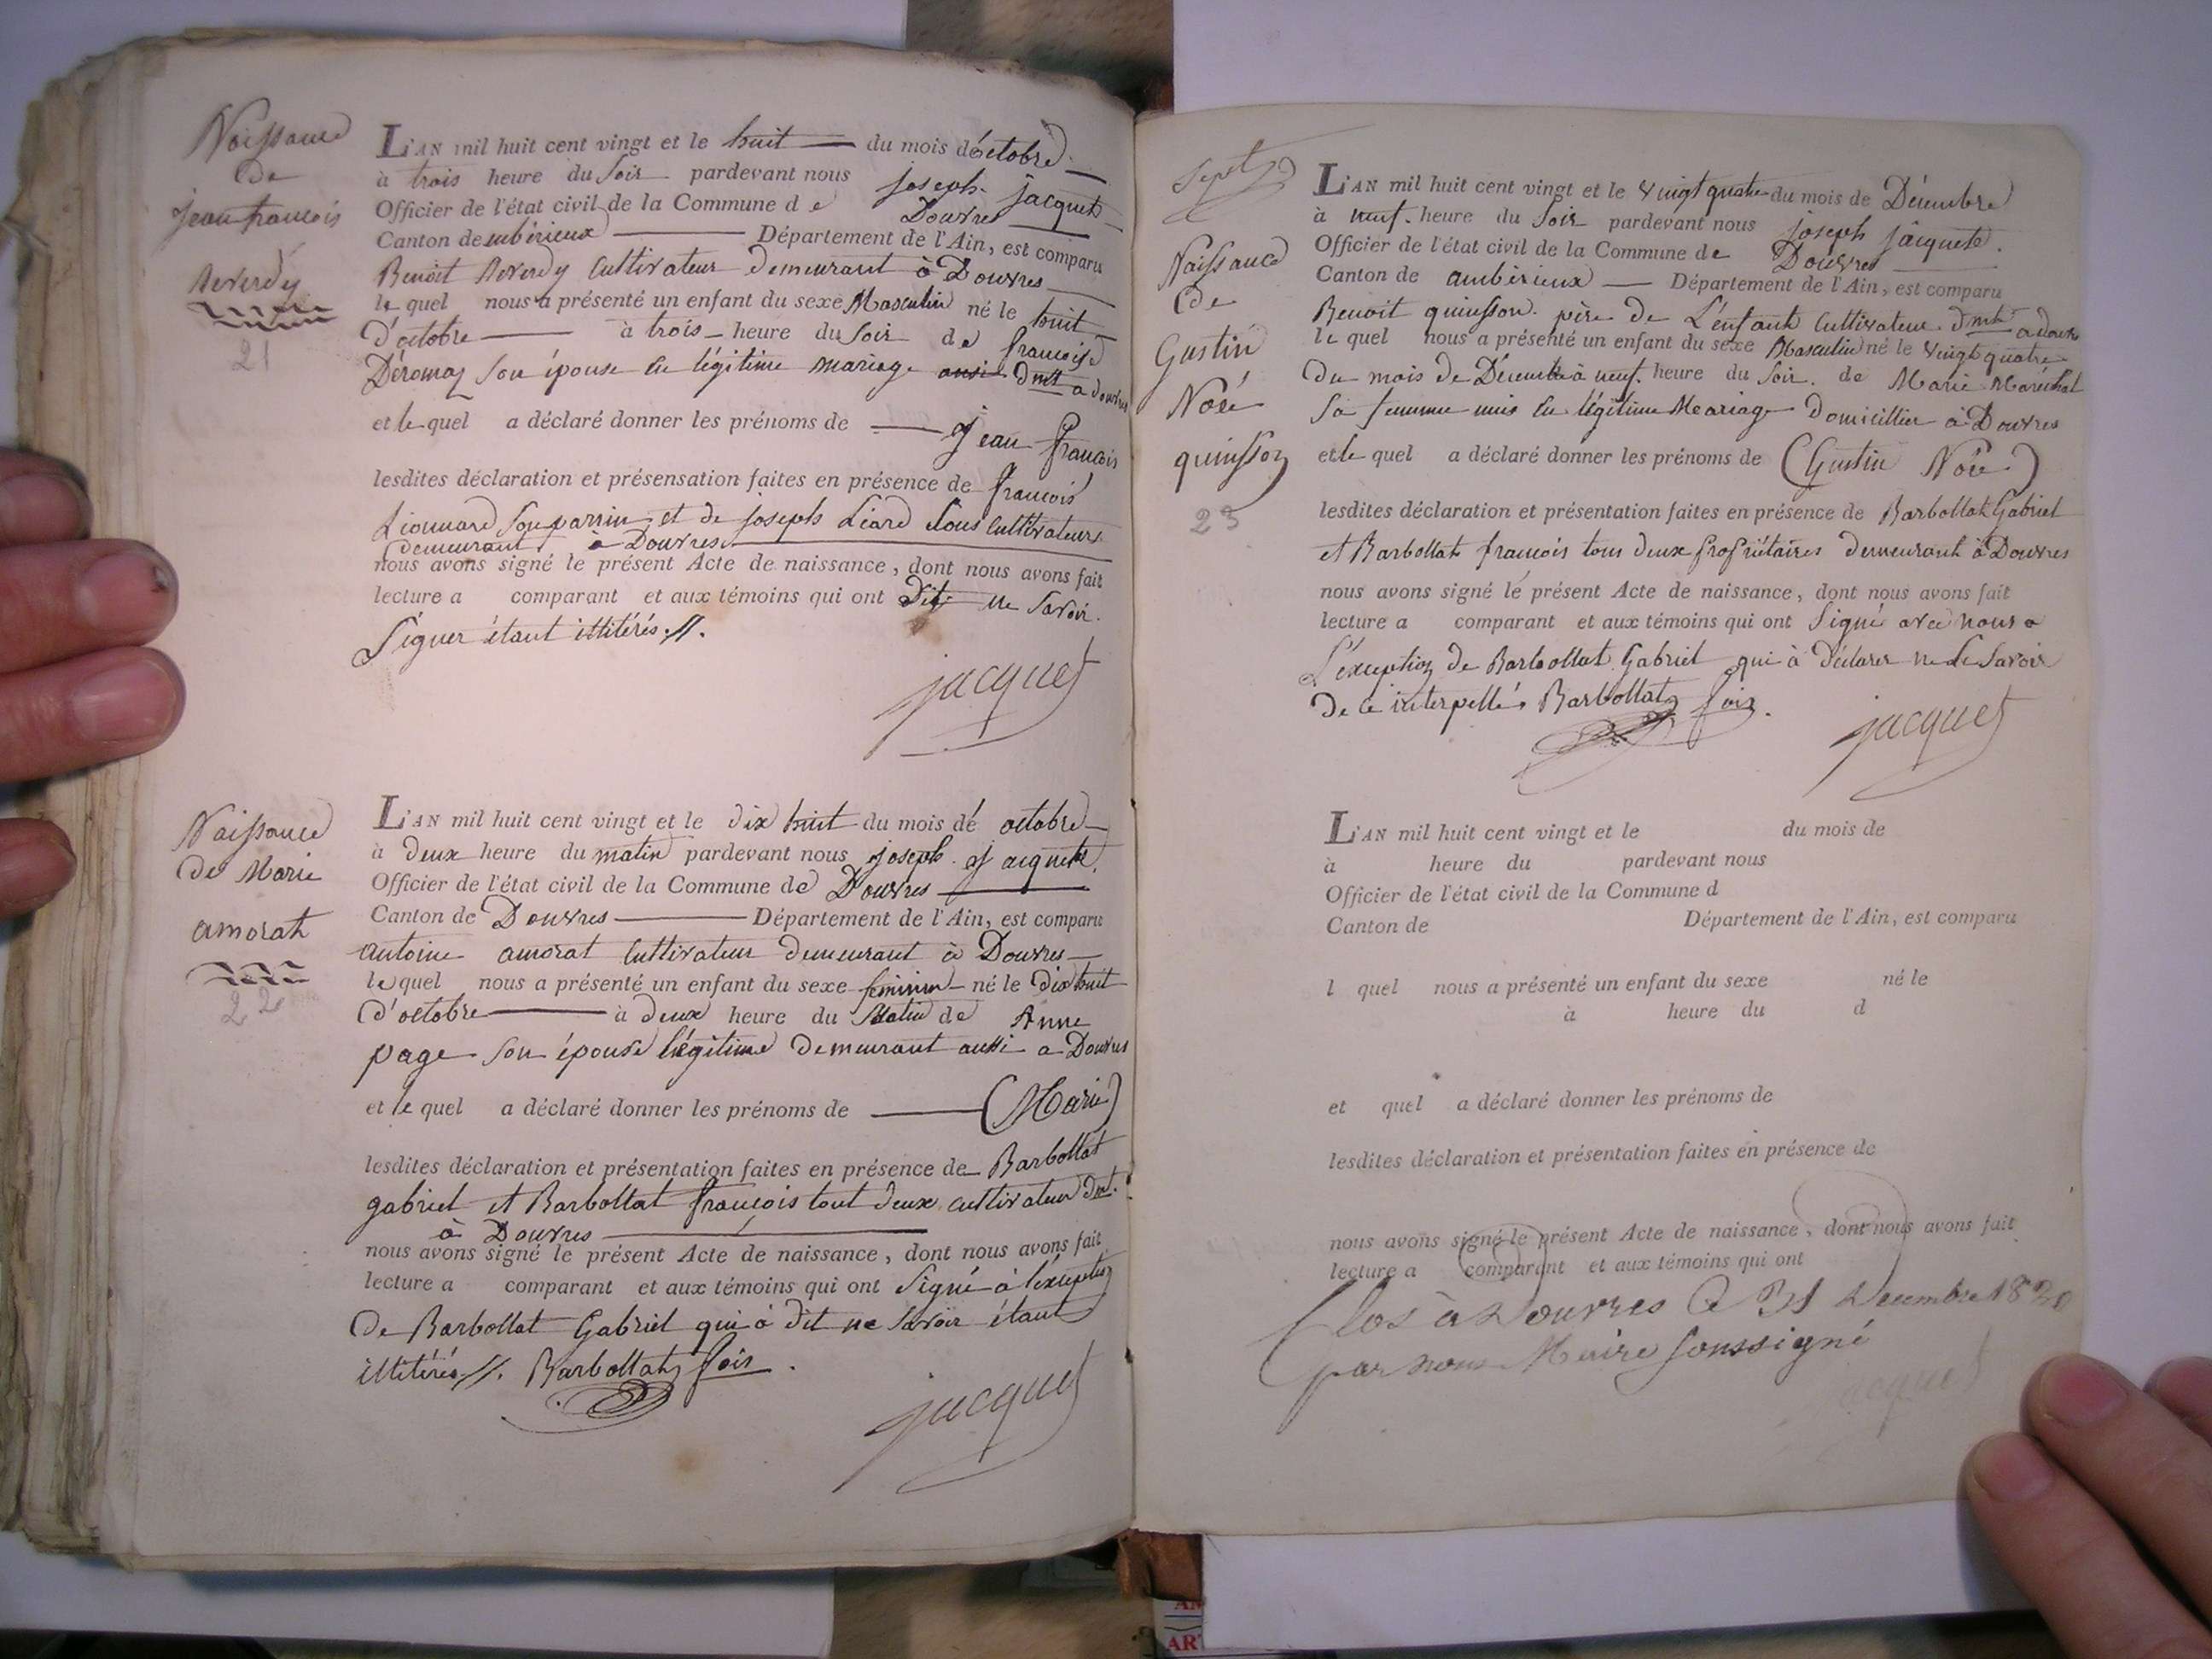 Naissance
de
jean francois
Reverdy
21
L'AN mil huit cent vingt et le huit du mois d'octobre
à trois heure du Soir pardevant nous joseph jacquet
Officier de l'état civil de la Commune de Douvres
Canton de ambérieux Département de l'Ain, est comparu
Benoit Reverdy Cultivateur demeurant à Douvres
le quel nous a présenté un enfant du sexe Masculin né le huit
D'octobre à trois heure du Soir de francoise
son épouse en légitime mariage dmt a douvres
et le quel a déclaré donner les prénoms de Jean francois
lesdites déclaration et présensation faites en présence de francois
Lionnard Son parrin et de joseph Liard tous Cultivateurs
demeurant à Douvres
nous avons signé le présent Acte de naissance, dont nous avons fait
lecture a comparant et aux témoins qui ont Dit ne Savoir
Signer étant illitérés.//.
jacquet
Naissance
de Marie
amorat
22
L'AN mil huit cent vingt et le dix huit du mois de octobre
à deux heure du matin pardevant nous joseph jacquet
Officier de l'état civil de la Commune de Douvres
Canton de Douvres Département de l'Ain, est comparu
antoine amorat Cultivateur demeurant à Douvres
le quel nous a présenté un enfant du sexe féminin né le dix huit
d'octobre à deux heure du Matin de Anne
page son épouse légitime demeurant aussi a Douvres
et le quel a déclaré donner les prénoms de (Marie)
lesdites déclaration et présentation faites en présence de Barbollat
gabriel et Barbollat françois tout deux cultivateur dmt.
à Douvres
nous avons signé le présent Acte de naissance, dont nous avons fait
lecture a comparant et aux témoins qui ont Signé à l'exception
de Barbollat Gabriel qui à dit ne Savoir étant
illitérés//. Barbollat fois.
jacquet
Sept
Naissance
de
Gustin
Noé
quinsson
23
L'AN mil huit cent vingt et le vingt quatre du mois de Décembre
à neuf heure du Soir pardevant nous joseph jacquet.
Officier de l'état civil de la Commune de Douvres
Canton de ambérieux Département de l'Ain, est comparu
Benoit quinsson père de L'enfant Cultivateur dmt a douvres
le quel nous a présenté un enfant du sexe Masculin né le vingt quatre
du mois de Décembre à neuf heure du Soir de Marie Maréchal
Sa femme unis en légitime Meariage domicillier à Douvres
et le quel a déclaré donner les prénoms de (Gustin Noé)
lesdites déclaration et présentation faites en présence de Barbollat Gabriel
et Barbollat francois tous deux propriétaires demeurant à Douvres
nous avons signé le présent Acte de naissance, dont nous avons fait
lecture a comparant et aux témoins qui ont Signé avec nous a
L'exception de Barbollat Gabriel qui à déclarer ne le Savoir
De ce interpellé, Barbollat fois.
jacquet
L'AN mil huit cent vingt et le du mois de
à heure du pardevant nous
Officier de l'état civil de la Commune d
Canton de Département de l'Ain, est comparu
l quel nous a présenté un enfant du sexe né le
à heure du d
et quel a déclaré donner les prénoms de
lesdites déclaration et présentation faites en présence de
nous avons signé le présent Acte de naissance, dont nous avons fait
lecture a comparant et aux témoins qui ont
Clos à Douvres Ce 31 Decembre 1820
par nous Maire soussigné
jacquet
AR